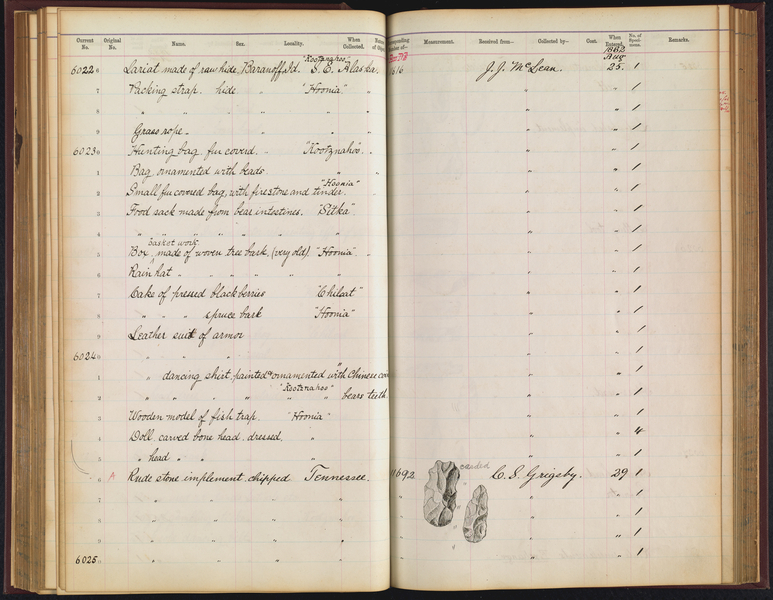 Current No. Original No. Name. Sex. Locality. When Collected. Measurement. Received from— Collected by— Cost. When Entered. No. of Speci- mens. Remarks.
1882
"Kootznahoo" Aug
60226 Lariat made of raw hide, Baranoff Id. S. E. Alaska. J. J. McLean. 25. 1
7 Packing strap. hide " "Hoonia" " " " 1
8 " " " " " " " 1
9 Grass rope " " " " " 1
60230 Hunting bag fur coverd. " "Kootznahoo" " " " 1
1 Bag, ornamented with beads " " " " 1
"Hoonia"
2 Small fur covered bag, with fire stone and tinder. " " 1
3 Food sack made from bear intestines. "Sitka" " " 1
4 " " " " " " " " 1
basket work
5 Box, made of woven tree bark, (very old). "Hoonia" " " " 1
6 Rain hat " " " " " " " 1
7 Cake of pressed blackberries "Chilcat" " " 1
8 " " " spruce bark "Hoonia" " " 1
9 Leather suit of armor " " 1
60240 " " " " " 1
1 " dancing shirt, painted & ornamented with Chinese " " 1
"Kootznahoo"
2 " " " " " " bears teeth. " " 1
3 Wooden model of fish trap. "Hoonia" " " 1
4 Doll, carved bone head, dressed. " " " 4
5 " head " " " " " 1
6 A Rude stone implement, chipped Tennessee. 11692 carded C. S. Grigsby. 29 1
7 " " " " " " 1
8 " " " " " " 1
9 " " " " " 1
60250 " " " " " 1